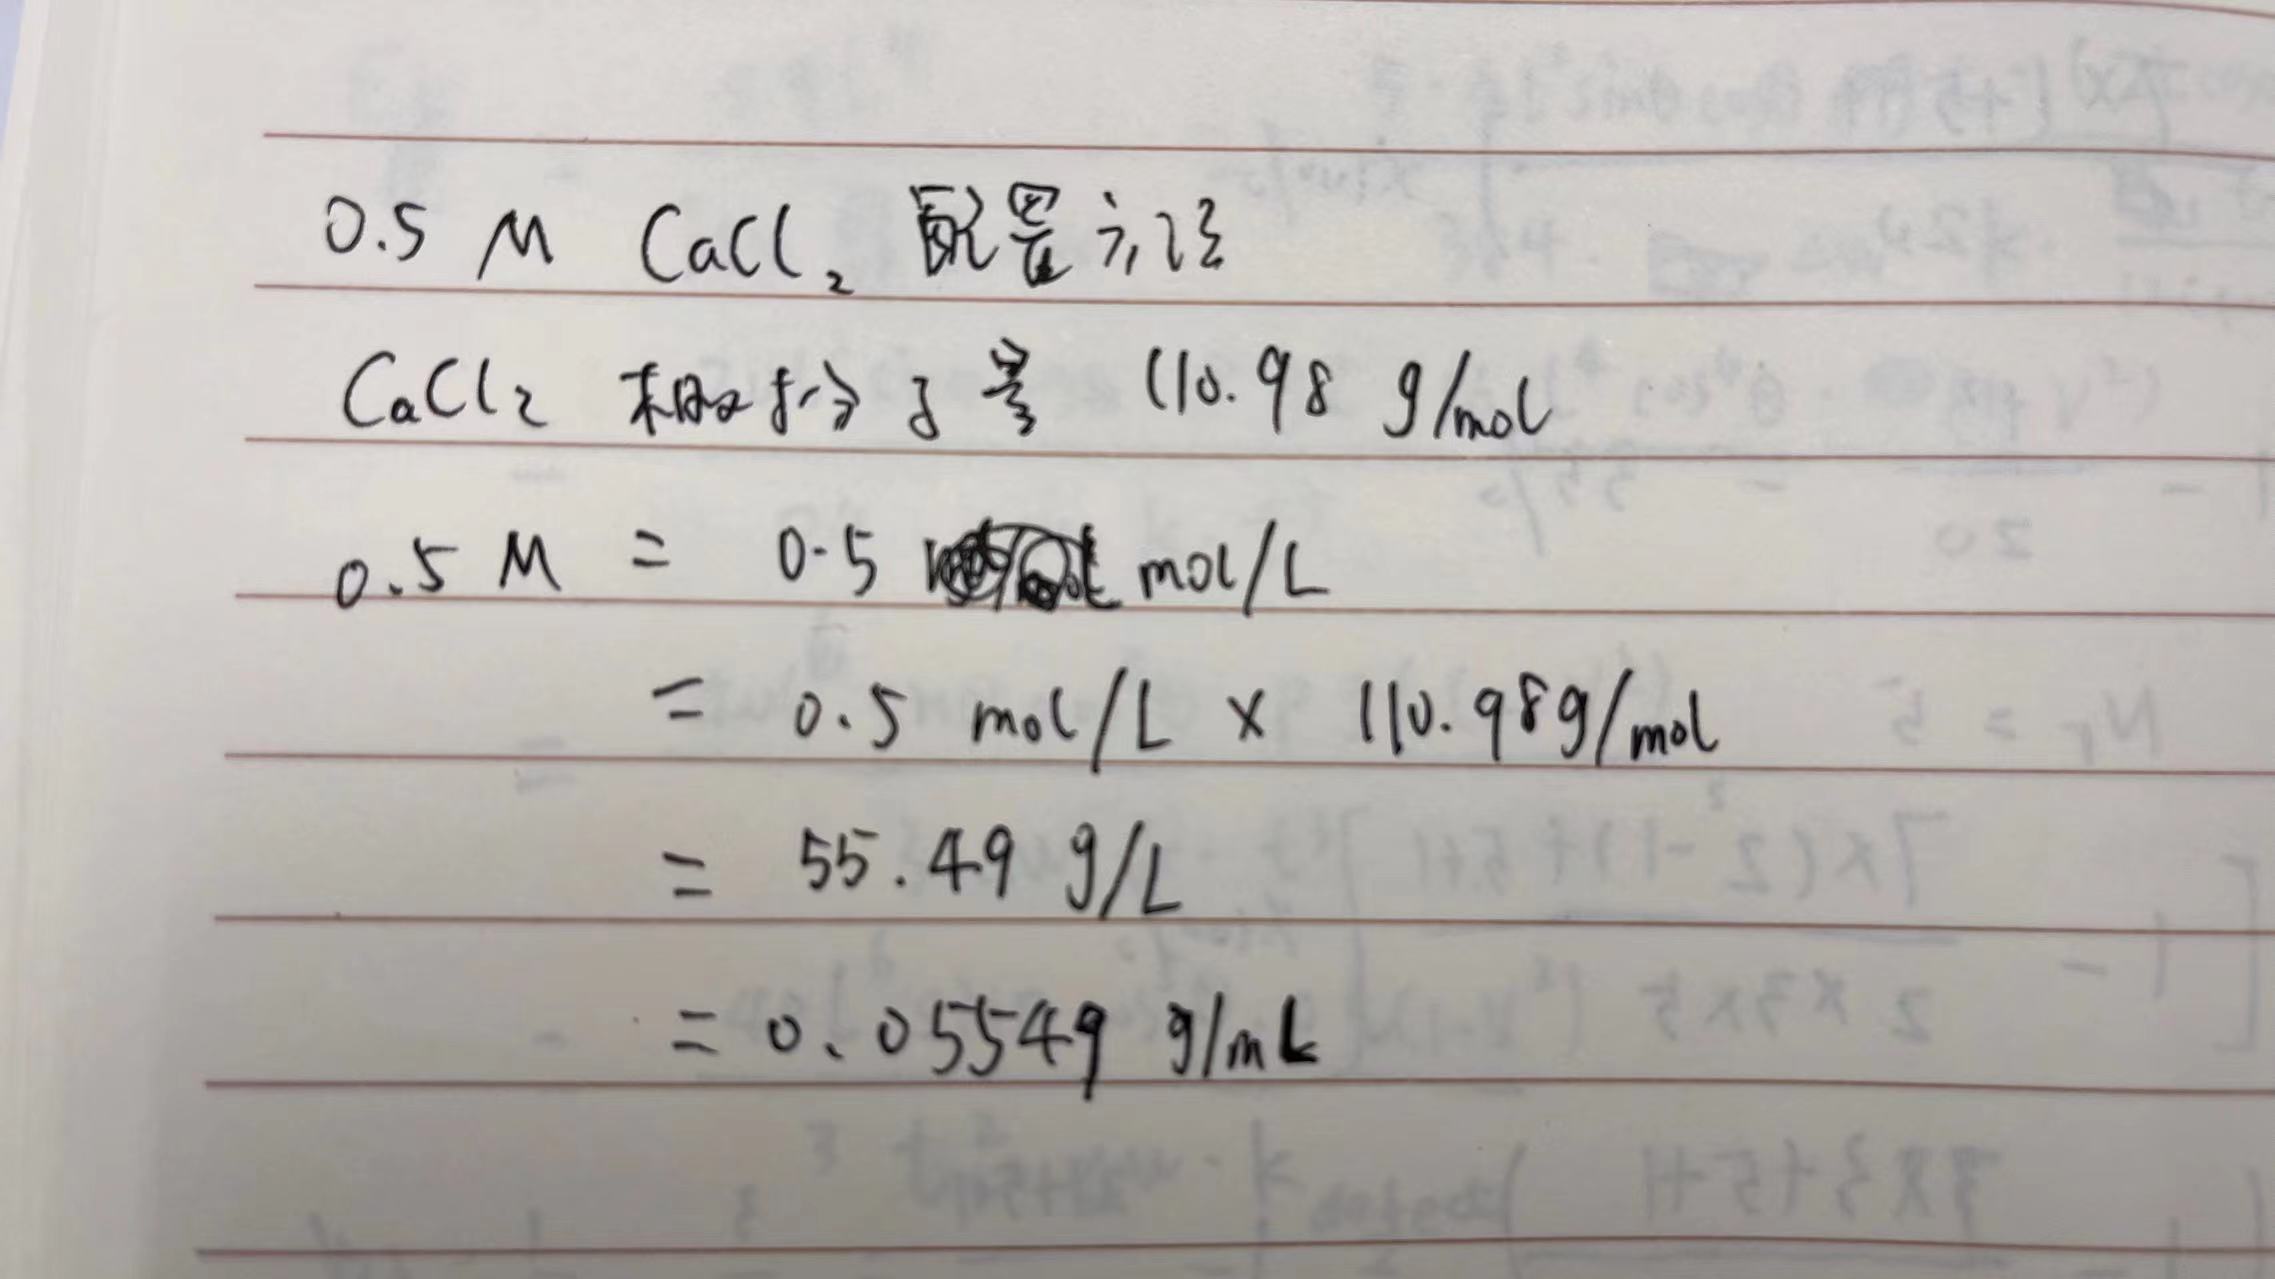 0.5 M CaCl₂ 配置方法
CaCl₂ 相对分子量 110.98 g/mol
0.5 M = 0.5 mol/L
= 0.5 mol/L × 110.98g/mol
= 55.49 g/L
= 0.05549 g/mL